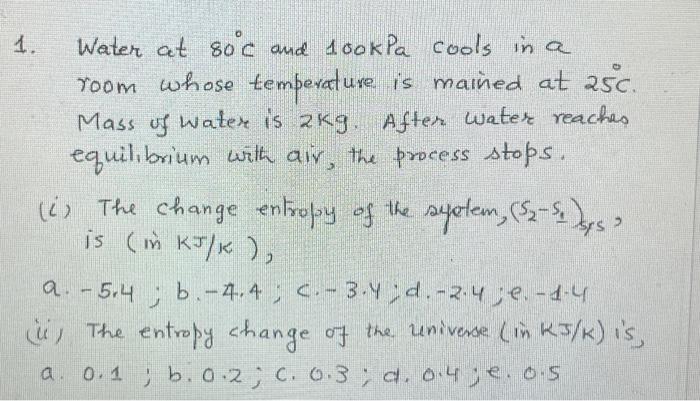 1. Water at 80°C and 100kPa cools in a
room whose temperature is mained at 25°C.
Mass of water is 2kg. After water reaches
equilibrium with air, the process stops.
(i) The change entropy of the system, (S₂-S₁)sys,
is (in KJ/K),
a. -5.4 ; b. -4.4 ; c. -3.4 ; d. -2.4 ; e. -1.4
(ii) The entropy change of the universe (in KJ/K) is,
a. 0.1 ; b. 0.2 ; c. 0.3 ; d. 0.4 ; e. 0.5